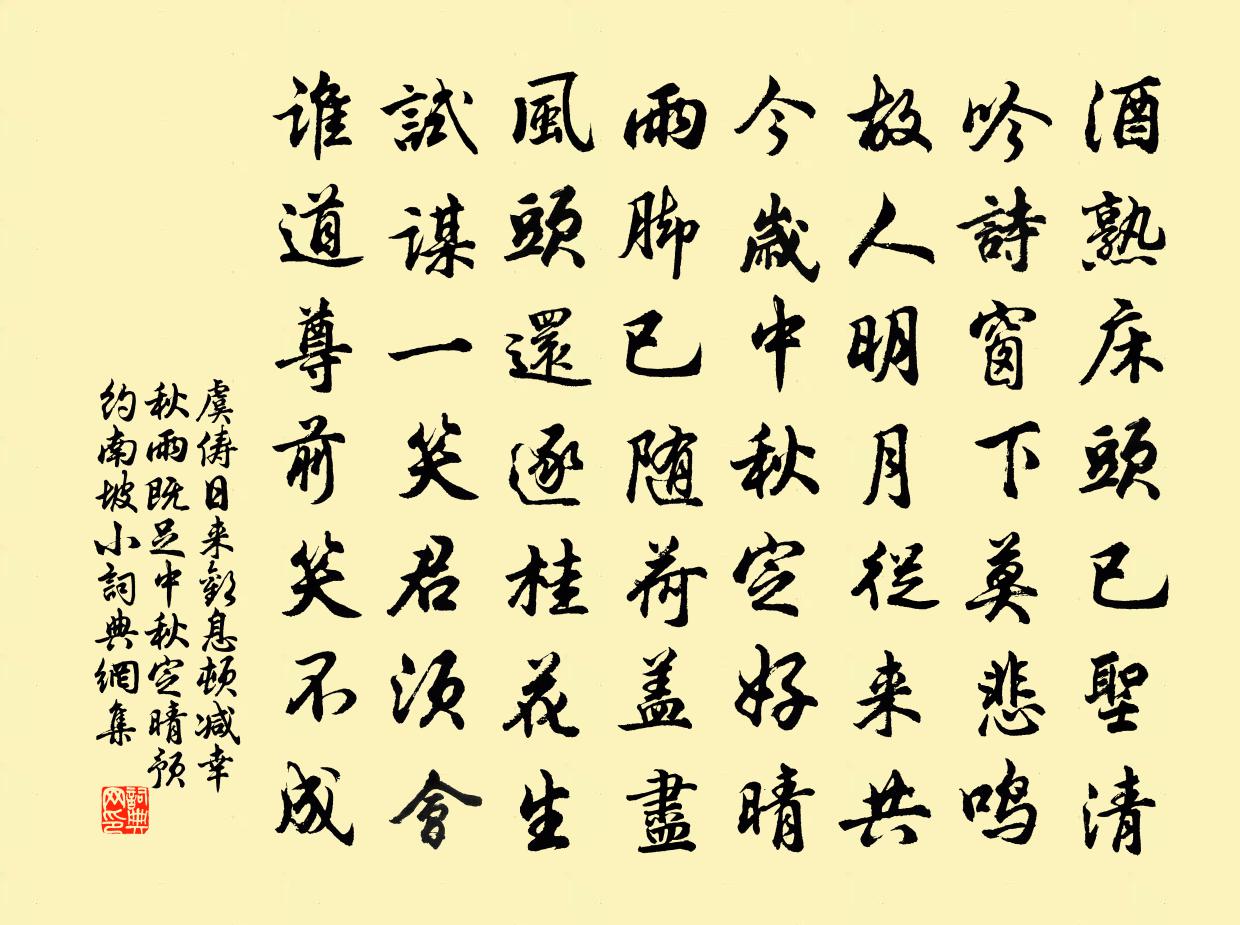 酒熟床頭已聖清
吟詩窗下莫悲鳴
故人明月從来共
今歲中秋定好晴
雨脚已随荷盖盡
風頭還逐桂花生
試謀一笑君須會
誰道尊前笑不成
虞儔日来氣息頓減幸
秋雨既足中秋定晴預
約南坡小詞典網集
詞典网印